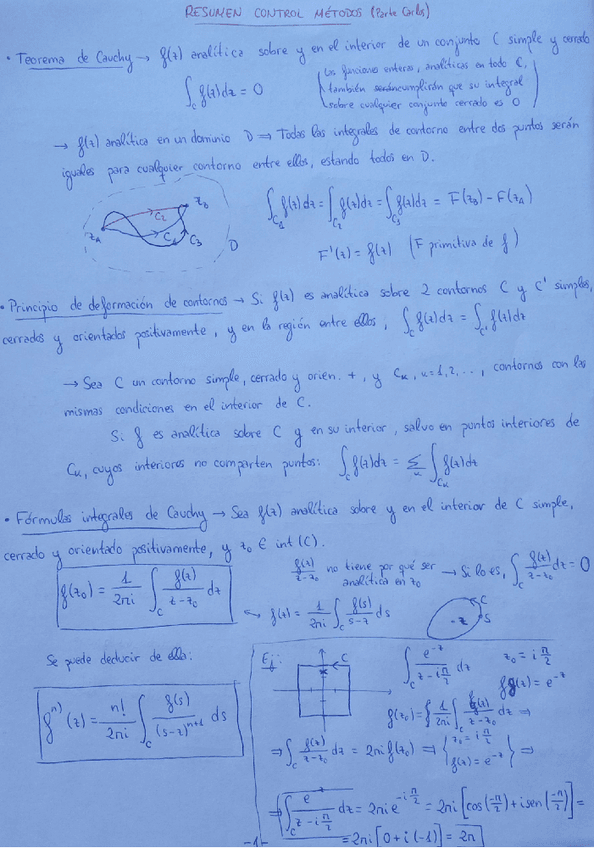 RESUMEN CONTROL MÉTODOS (Parte Carlos)
• Teorema de Cauchy → f(z) analítica sobre y en el interior de un conjunto C simple y cerrado
∫_C f(z)dz = 0
(Las funciones enteras, analíticas en todo ℂ,
también cumplirán que su integral
sobre cualquier conjunto cerrado es 0)
→ f(z) analítica en un dominio D ⇒ Todas las integrales de contorno entre dos puntos serán
iguales para cualquier contorno entre ellos, estando todos en D.
z_A C_2 z_B C_1 C_3 D
∫_{C_1} f(z)dz = ∫_{C_2} f(z)dz = ∫_{C_3} f(z)dz = F(z_B) - F(z_A)
F'(z) = f(z) (F primitiva de f)
• Principio de deformación de contornos → Si f(z) es analítica sobre 2 contornos C y C' simples,
cerrados y orientados positivamente, y en la región entre ellos, ∫_C f(z)dz = ∫_{C'} f(z)dz
→ Sea C un contorno simple, cerrado y orien. +, y C_k, k=1,2,..., contornos con las
mismas condiciones en el interior de C.
Si f es analítica sobre C y en su interior, salvo en puntos interiores de
C_k, cuyos interiores no comparten puntos: ∫_C f(z)dz = Σ_k ∫_{C_k} f(z)dz
• Fórmulas integrales de Cauchy → Sea f(z) analítica sobre y en el interior de C simple,
cerrado y orientado positivamente, y z_0 ∈ int(C).
f(z_0) = 1/2πi ∫_C f(z)/(z-z_0) dz
f(z)/(z-z_0) no tiene por qué ser analítica en z_0 → Si lo es, ∫_C f(z)/(z-z_0) dz = 0
↪ f(z) = 1/2πi ∫_C f(s)/(s-z) ds
C
·z S
Se puede deducir de ella:
f^{n)}(z) = n!/2πi ∫_C f(s)/(s-z)^{n+1} ds
Ej: C
∫_C e^{-z}/(z-iπ/2) dz z_0 = iπ/2
f(z) = e^{-z}
f(z_0) = 1/2πi ∫_C f(z)/(z-z_0) dz ⇒
⇒ ∫_C f(z)/(z-z_0) dz = 2πi f(z_0) ⇒ {z_0 = iπ/2
f(z) = e^{-z}} ⇒
⇒ ∫_C e^{-z}/(z-iπ/2) dz = 2πi e^{-iπ/2} = 2πi [cos(-π/2) + i sen(-π/2)] =
= 2πi [0 + i(-1)] = 2π
-1-